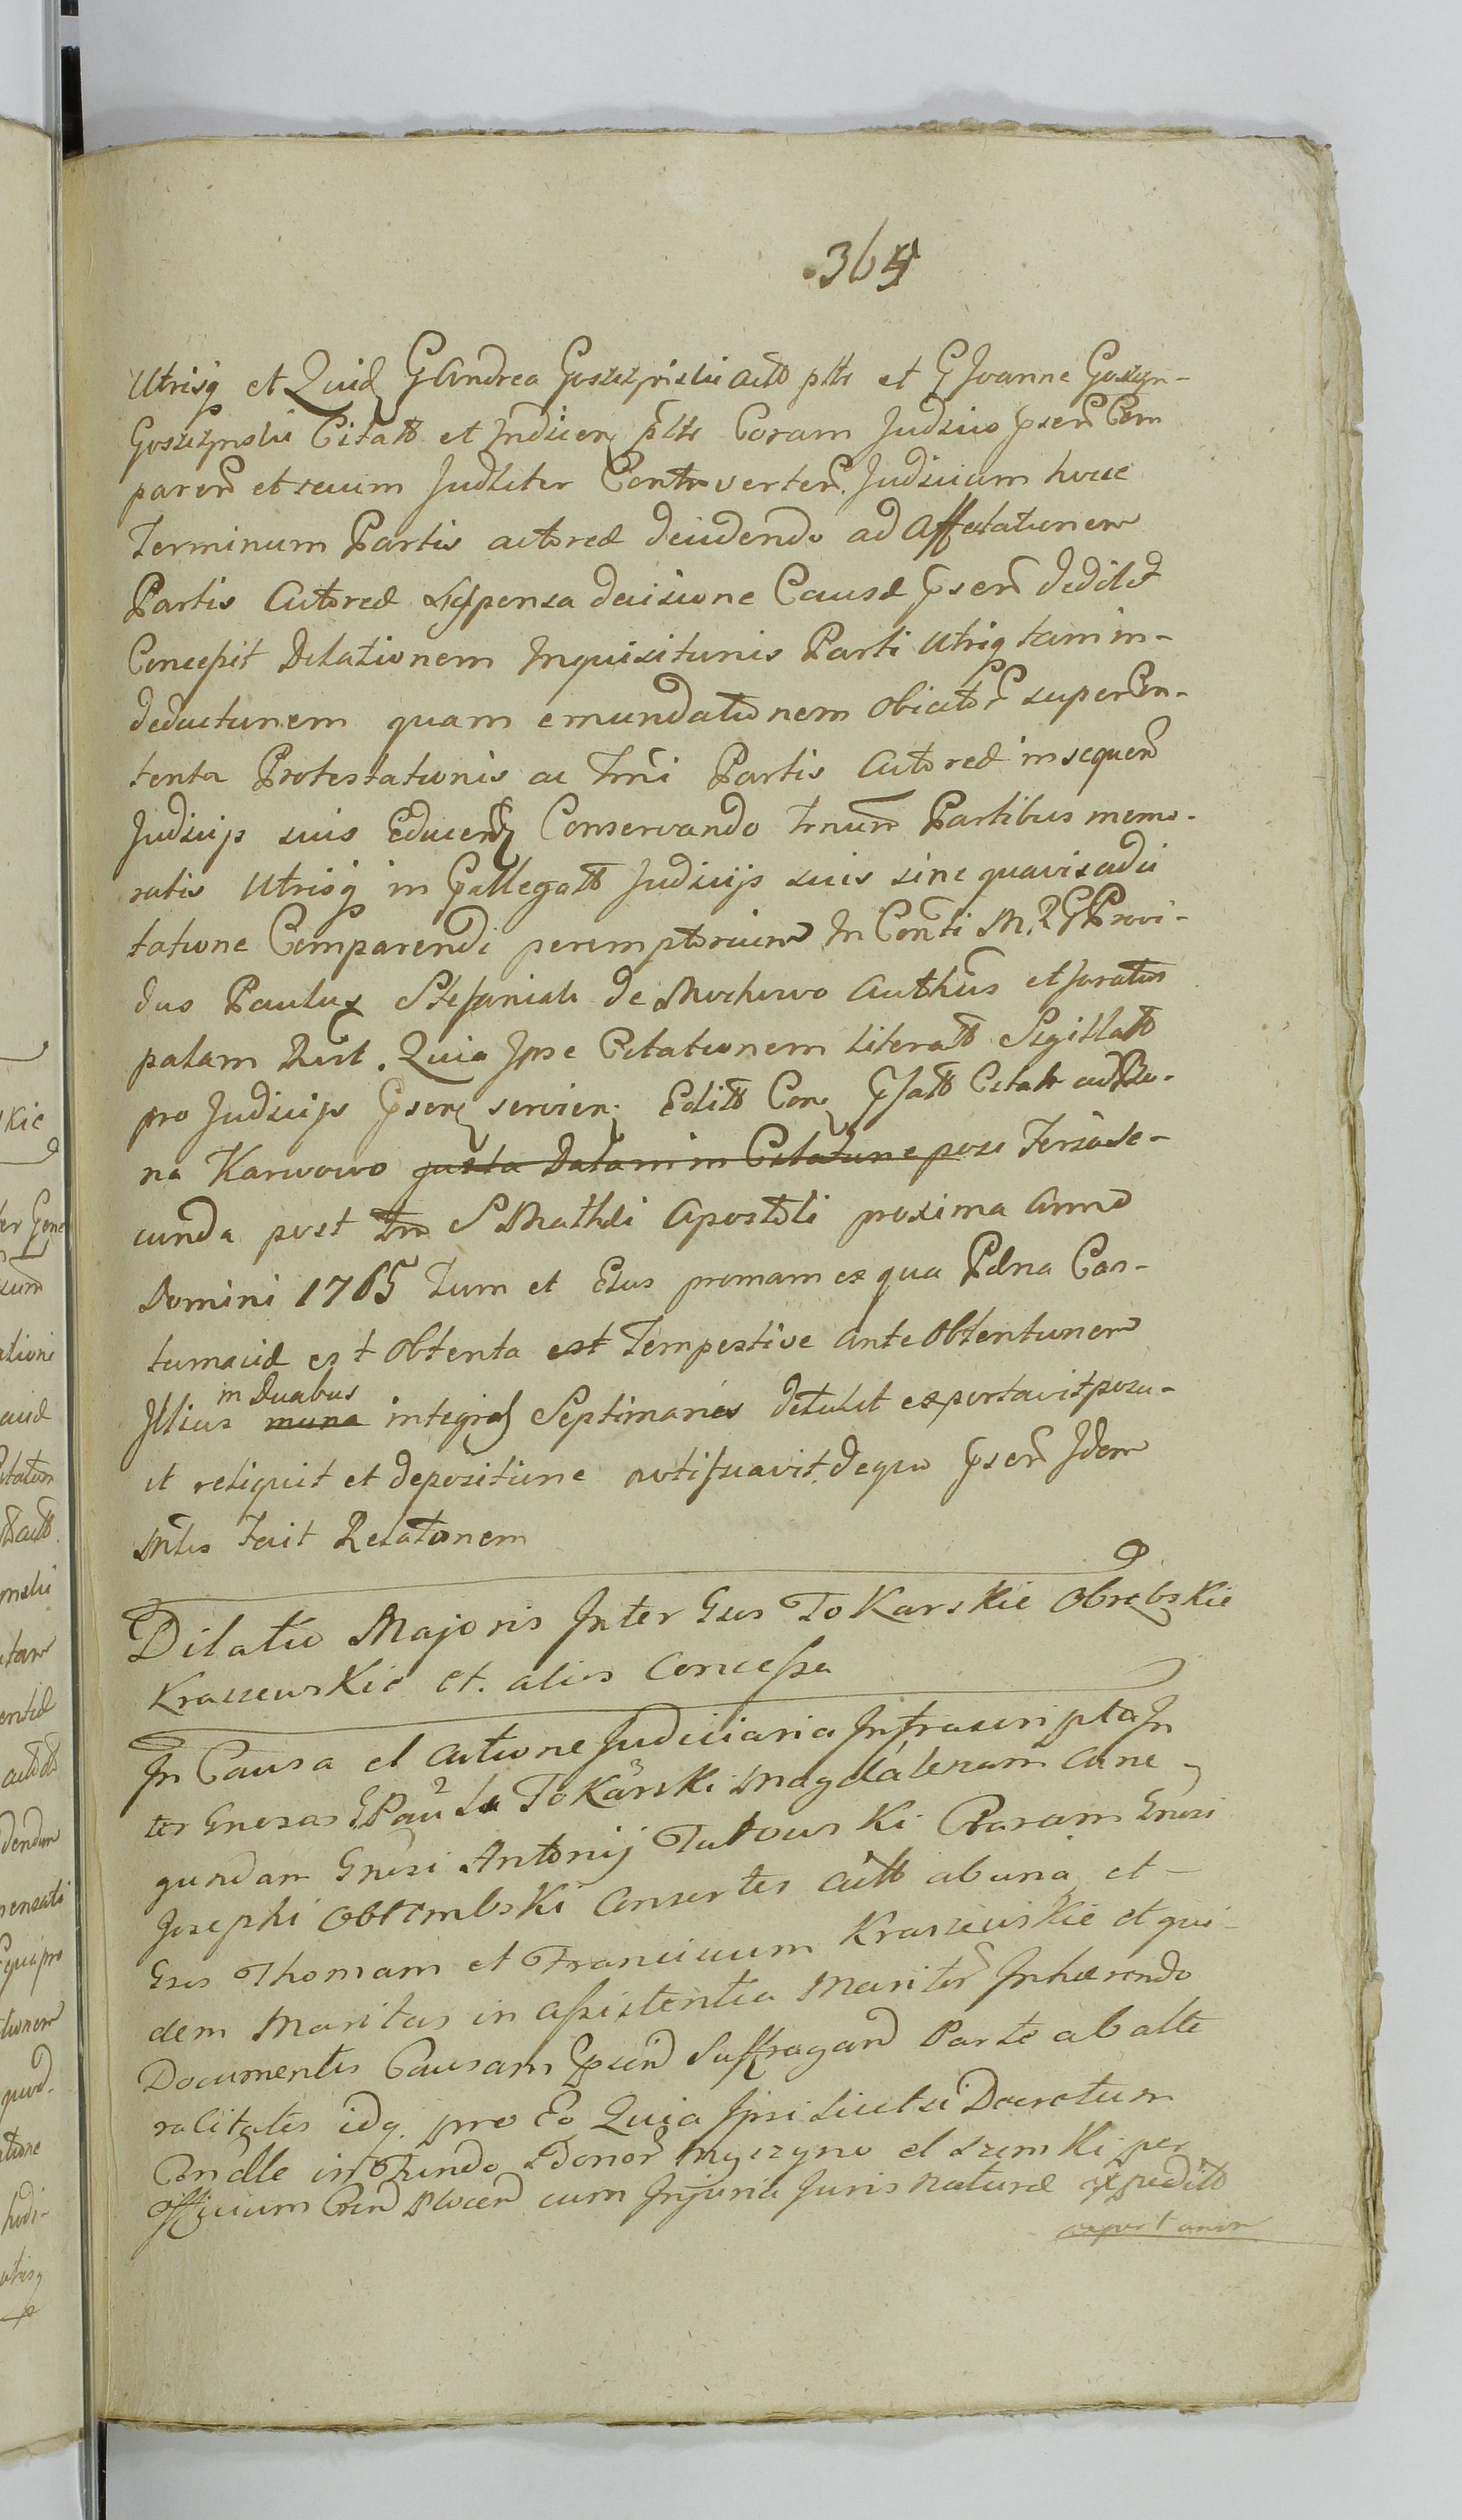 364
Utrisq et Quid G Andrea Goszczynski actt ptt et G Joanne Goszyn-
Goszczynski Citatt et Inducen ptt Coram Judicio psen Com
paren et secum Judtiter Controverten. Judicium hocce
Terminum Partis actoreæ decidendo ad affectationem
Partis Actoreæ suspensa decisione Causæ psen dedit et
Concessit Dilationem Inquisitionis Parti Utriq tam in-
deductionem quam emundationem obiator super Con-
tenta Protestationis ac Trni Partis Actoreæ in sequen
Judicijs suis Educen Conservando trnum Partibus memo-
ratis Utrisq in pallegatt Judicijs suis sine quavis adci
tatione Comparendi peremptorium In Conti M R G Provi-
dus Paulus Stefaniak de Mochowo authus et juratus
palam Rert. Quia Ipse Citationem literatt Sigillatt
pro Judicijs psen servien. Editt Con psatt Citatt ad Bo-
na Karwowo juxta Datam in Citatione pose Feria Se-
cunda post S Mathæi Apostoli proxima Anno
Domini 1765 Tum et Eius primam ex qua Pæna Con-
tumaciæ est Obtenta est Tempestive ante Obtentionem
in Duabus
Illius in una integris Septimanis detulit exportavit posu-
it reliquit et depositione notificavit. de quo psen Idem
Mlis fecit Relationem
Dilatio Majoris Inter Gsos Tokarskie Obrębskie
Kraszewskie et. alios Concessa
In Causa et actione Judiciaria Infrascripta In
ter Gnosas Paula Tokarski Magdalenam Cune
gundam Gnosi Antonij Tutowski Param Gnosi
Josephi Obrembski Consortes actt ab una et
Gsos Thomam et Franciscum Kraszewskie et qui-
dem Maritas in assistentia Maritor Inhærendo
Documentis Causam psen Suffragan Parte ab alte
ralitates idq. pro Eo Quia Ipsi licet si Decretum
Condle in Fundo Bonor Myszyno et Szemki per
Officium Cren Plocen cum Injuria Juris naturæ expeditt